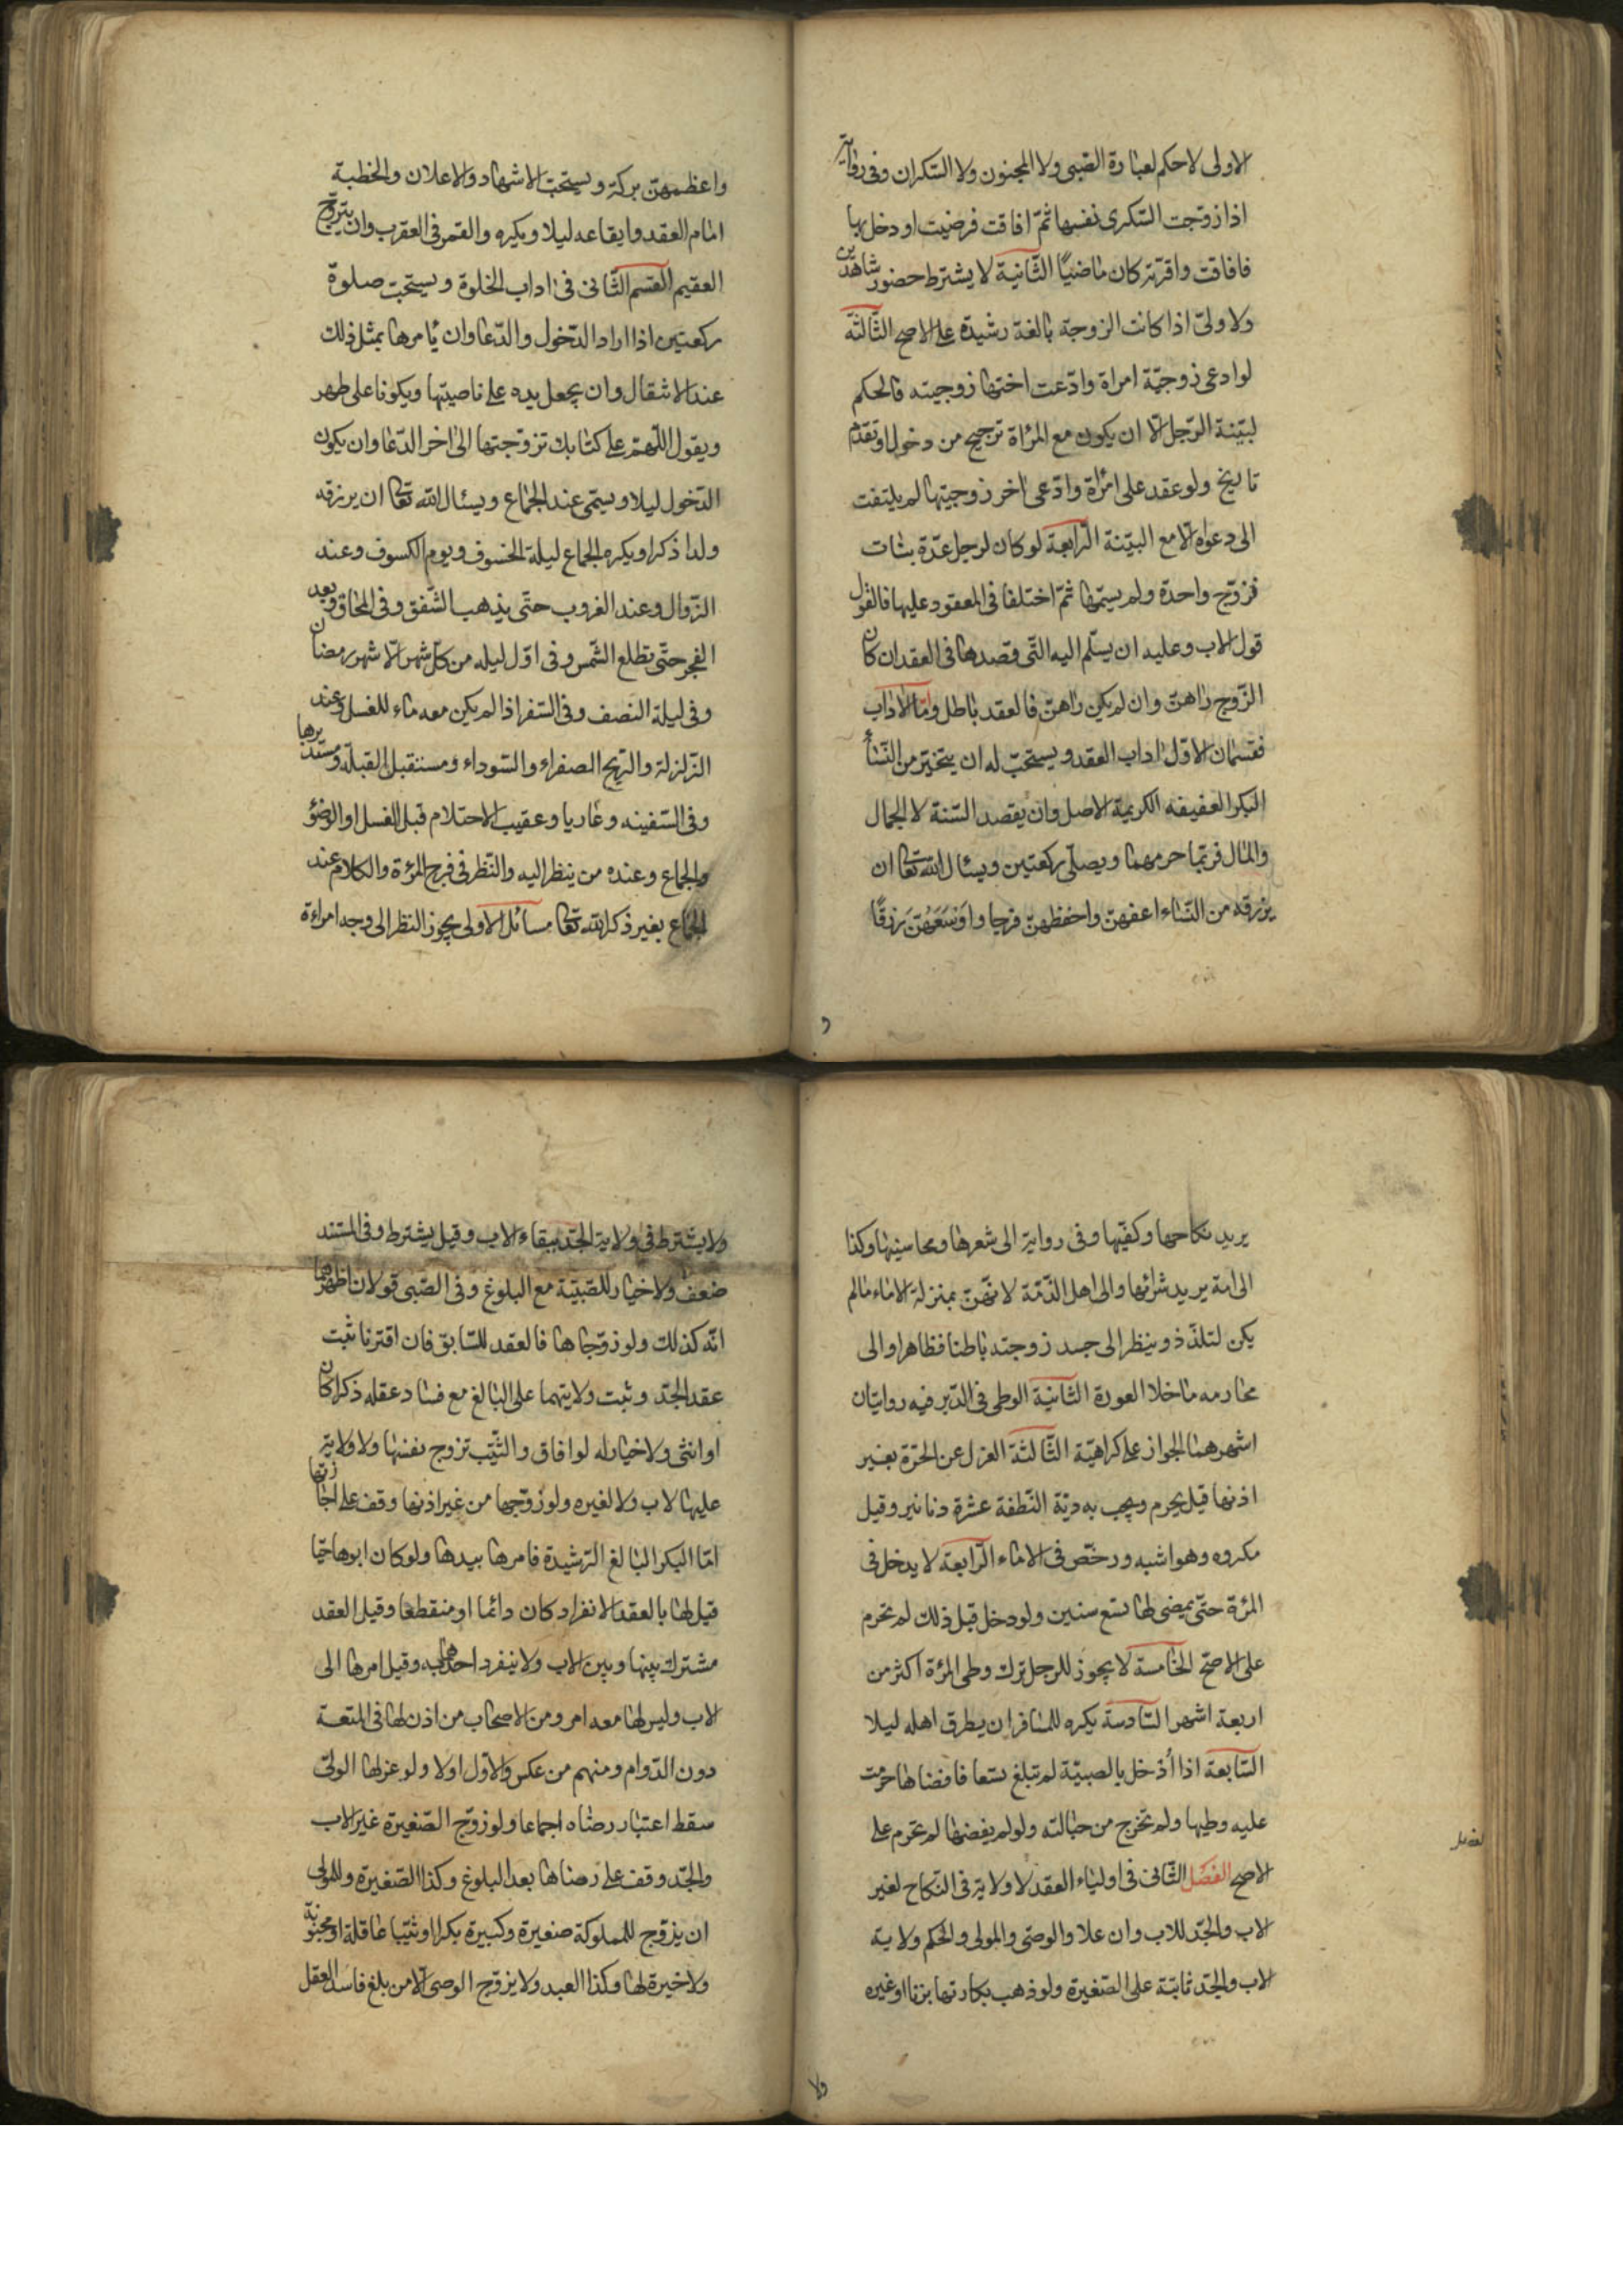 الاولى لا حكم لعبارة الصبى ولا المجنون ولا السكران وفى رواية
اذا زوجت السكرى نفسها ثمّ افاقت فرضيت او دخل بها
فافاقت واقرّته كان ماضيًا الثّانية لا يشترط حضور شاهدين
ولا ولىّ اذا كانت الزوجة بالغة رشيدة على الاصح الثّالثة
لو ادعى زوجيّة امراة وادّعت اختها زوجيته فالحكم
لبيّنة الرّجل الّا ان يكون مع المرٔاة ترجيح من دخول او تقدّم
تاريخ ولو عقد على امرٔاة وادّعى اخر زوجيتها لم يلتفت
الى دعواه الّا مع البيّنة الرّابعة لو كان لرجل عدّة بنات
فزوّج واحدة ولم يسمّها ثمّ اختلفا فى المعقود عليها فالقول
قول الاب وعليه ان يسلّم اليه الّتى قصدها فى العقد ان كان
الزّوج راهنّ وان لم يكن راهنّ فالعقد باطل وامّا الاداب
فقسمان الاوّل اداب العقد ويستحبّ له ان يتخيّر من النّسأ
البكر العفيفه الكريمة الاصل وان يقصد السّنة لا الجمال
والمال فربّما حرمهما ويصلّى ركعتين ويسئال اللّه تعا ان
يرزقه من النّساء اعفهنّ واحفظهنّ فرجا واوسَعَهُنّ رزقًا
و
واعظمهنّ بركة ويستحبّ الاشهاد والاعلان والخطبة
امام العقد وايقاعه ليلا ويكره والقمر فى العقرب وان يتزوّج
العقيم القسم الثّانى فى اداب الخلوة ويستحبّ صلوة
ركعتين اذا اراد الدّخول والدّعا وان ئامرها بمثل ذلك
عند الانتقال وان يجعل يده على ناصيتها ويكونا على طهر
ويقول اللّهمّ على كتابك تزوّجتها الى اخر الدّعا وان يكون
الدّخول ليلا ويسمّى عند الجماع ويسئال اللّه تعا ان يرزقه
ولدا ذكرا ويكره الجماع ليلة الخسوف ويوم الكسوف وعند
الزّوال وعند الغروب حتّى يذهب الشّفق وفى المحاق وبعد
الفجر حتّى تطلع الشّمس وفى اوّل ليله من كلّ شهر الّا شهر رمضان
وفى ليلة النصف وفى السّفر اذا لم يكن معه ماء للغسل وعند
الزّلزلة والرّيح الصفراء والسّوداء ومستقبل القبلة ومستدبرها
وفى السّفينه وعاريا وعقيب الاحتلام قبل الغسل او الوضوٴ
والجماع وعنده من ينظر اليه والنّظر فى فرج المرٔة والكلام عند
الجماع بغير ذكر اللّه تعا مسائل الاولى يجوز النظر الى وجه امراءة
يريد نكاحها وكفيّها وفى رواية الى شعرها ومحاسينها وكذا
الى امة يريد شرائها والى اهل الذّمّة لانّهنّ بمنزلة الاماء مالم
يكن لتلذّذ وينظر الى جسد زوجته باطنا فظاهرا والى
محارمه ما خلا العورة الثّانية الوطى فى الدّبر فيه روايتان
اشهرهما الجواز على كراهيّة الثّالثة العزل عن الحرّة بغير
اذنها قيل يحرم ويجب به ديّة النّطفة عشرة دنانير وقيل
مكروه وهو اشبه ورخّص فى الاماء الرّابعة لا يدخل فى
المرٔة حتّى يمضى لها تسع سنين ولو دخل قبل ذلك لم تحرم
على الاصحّ الخامسة لا يجوز للرجل ترك وطى المرٔة اكثر من
اربعة اشهر السّادسة يكره للمسافر ان يطرق اهله ليلا
السّابعة اذا أدخل بالصبيّة لم تبلغ تسعا فافضاها حرمت
عليه وطيها ولم تخرج من حبالته ولو لم يفضها لم تحرم على
الاصح الفصَل الثّانى فى اولياء العقد لا ولاية فى النّكاح لغير
الاب والجّد للاب وان علا والوصى والمولى والحكم ولاية
الاب والجّد ثابتة على الصّغيرة ولو ذهب بكارتها بزنا او غيره
ولا
ولا يشترط فى ولاية الجّد ببقاء الاب وقيل يشترط وفى المستند
ضعف ولا خيار للصّبيّة مع البلوغ وفى الصّبى قولان اظهرهما
انّه كذلك ولو زوّجاها فالعقد للسّابق فان اقترنا ثبت
عقد الجّد وثبت ولايتهما على البالغ مع فساد عقله ذكرا كان
او انثى ولا خيار له لو افاق والثّيّب تزوج نفسها ولا ولاية
عليها لاب ولا لغيره ولو زوّجها من غير اذنها وقف على اجازتها
امّا البكر البالغ الرّشيدة فامرها بيدها ولو كان ابوها حيّا
قيل لها بالعقد الانفراد كان دائما او منقطعا وقيل العقد
مشترك بينها وبين الاب ولا ينفرد احدهما به وقيل امرها الى
الاب وليس لها معه امر ومن الاصحاب من اذن لها فى المتعة
دون الدّوام ومنهم من عكس والاوّل اولا ولو عزلها الولىّ
سقط اعتبار رضاه اجماعا ولو زوّج الصّغيرة غير الاب
والجّد وقف على رضاها بعد البلوغ وكذا الصّغيرة وللمولى
ان يزوّج للمملوكة صغيرة وكبيرة بكرا او ثيّبا عاقلة او مجنونة
ولا خيرة لها وكذا العبد ولا يزوّج الوصى الّا من بلغ فاسد العقل